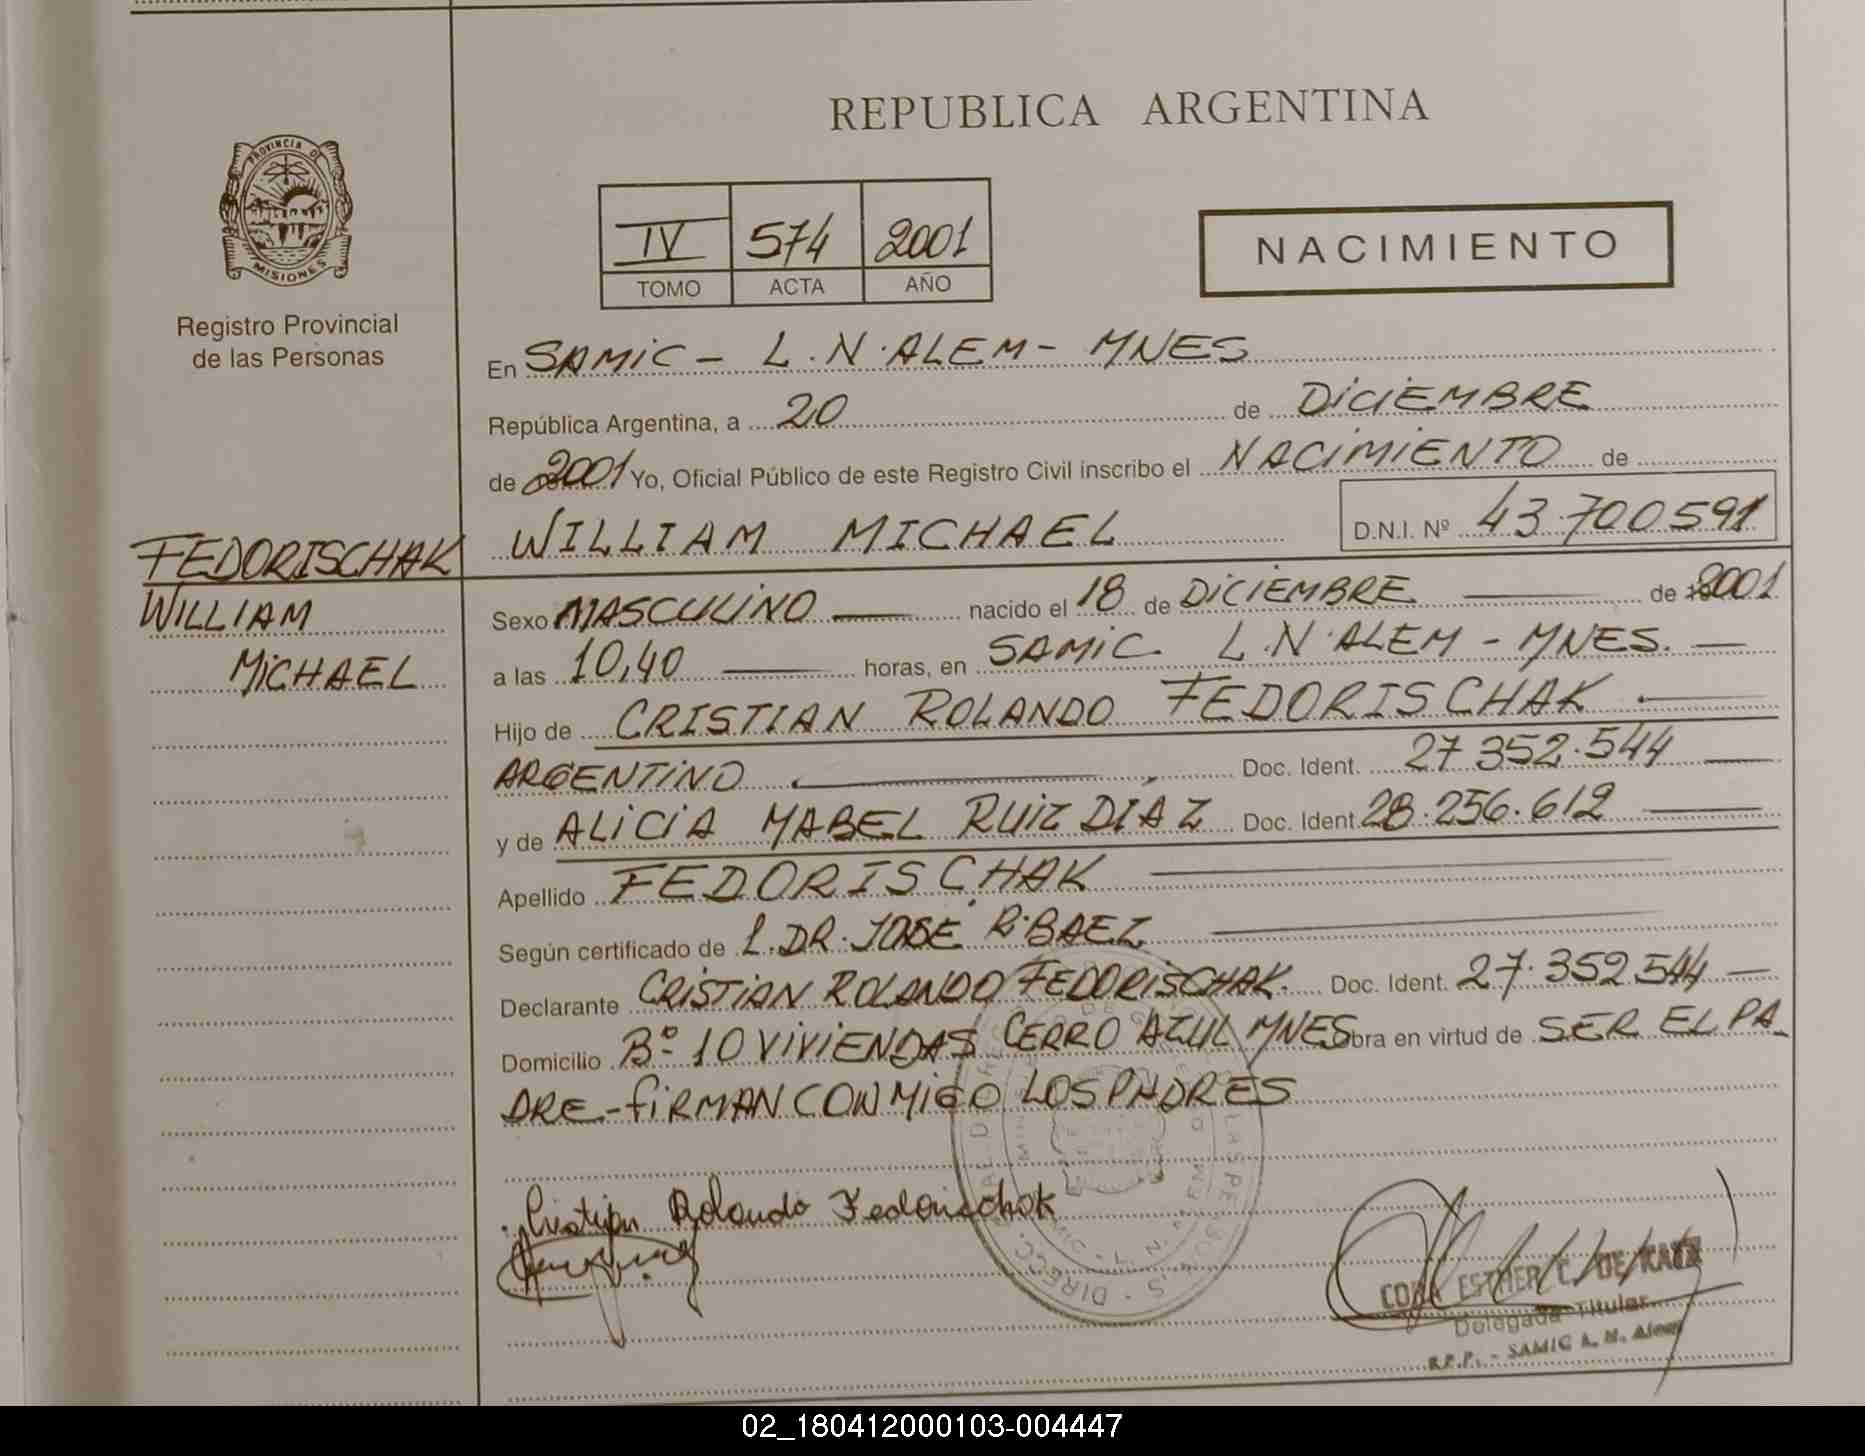 REPUBLICA ARGENTINA
PROVINCIA DE
MISIONES
Registro Provincial
de las Personas
IV 574 2001
TOMO ACTA AÑO
NACIMIENTO
En SAMIC - L.N. ALEM - MNES
República Argentina, a 20 de DICIEMBRE
de 2001 Yo, Oficial Público de este Registro Civil inscribo el NACIMIENTO de
WILLIAM MICHAEL D.N.I. Nº 43.700591
FEDORISCHAK
WILLIAM
MICHAEL
Sexo MASCULINO nacido el 18 de DICIEMBRE de 2001
a las 10,40 horas, en SAMIC. L.N. ALEM - MNES.
Hijo de CRISTIAN ROLANDO FEDORISCHAK
ARGENTINO Doc. Ident. 27.352.544
y de ALICIA MABEL RUIZ DÍAZ Doc. Ident 28.256.612
Apellido FEDORISCHAK
Según certificado de L. DR. JOSE R. BAEZ
Declarante CRISTIAN ROLANDO FEDORISCHAK. Doc. Ident. 27.352544
Domicilio Bº 10 VIVIENDAS CERRO AZUL MNES obra en virtud de SER EL PA-
DRE.-FIRMAN CONMIGO LOS PADRES
Cristian Rolando Fedorischak
ESTHER C. DE KATZ
Delegada Titular
R.P.P. - SAMIC L. N. Alem
02_180412000103-004447